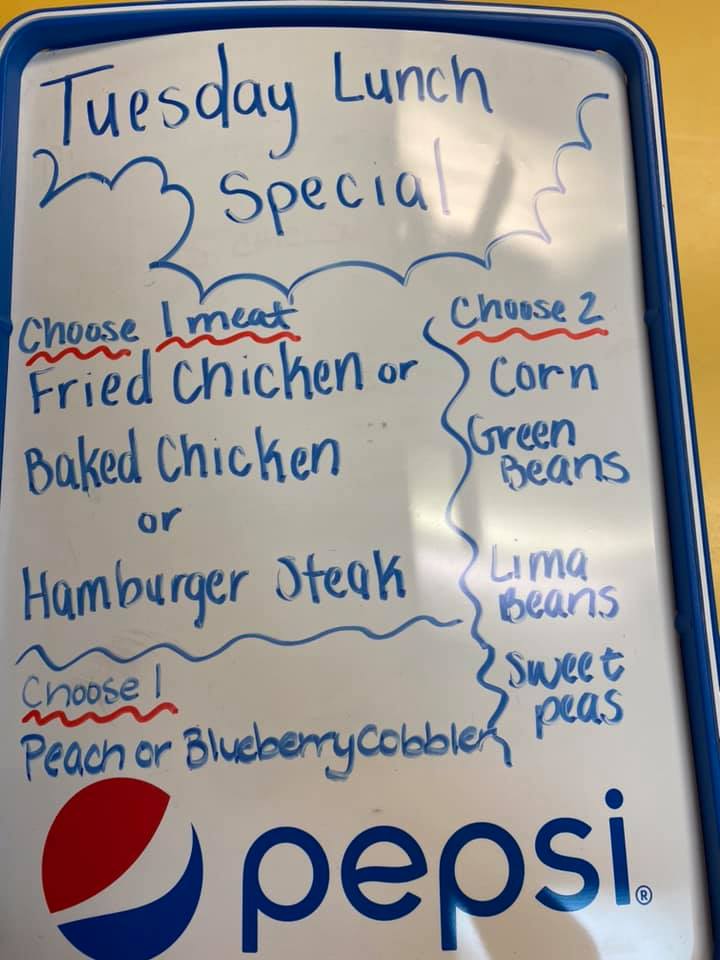 Tuesday Lunch
Special
Choose 1 meat
Fried Chicken or
Baked Chicken
or
Hamburger Steak
Choose 2
Corn
Green
Beans
Lima
Beans
Sweet
peas
Choose 1
Peach or Blueberry Cobbler
pepsi®